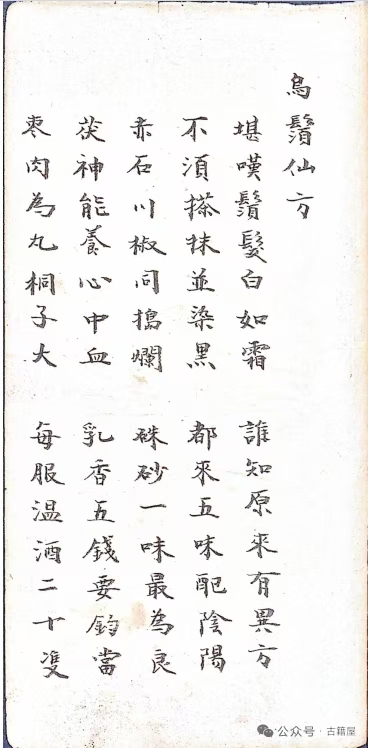 烏鬚仙方
堪嘆鬚髮白如霜 誰知原來有異方
不須搽抹並染黑 都來五味配陰陽
赤石川椒同搗爛 硃砂一味最為良
茯神能養心中血 乳香五錢要鈞當
棗肉為丸桐子大 每服温酒二十雙
公众号·古籍屋